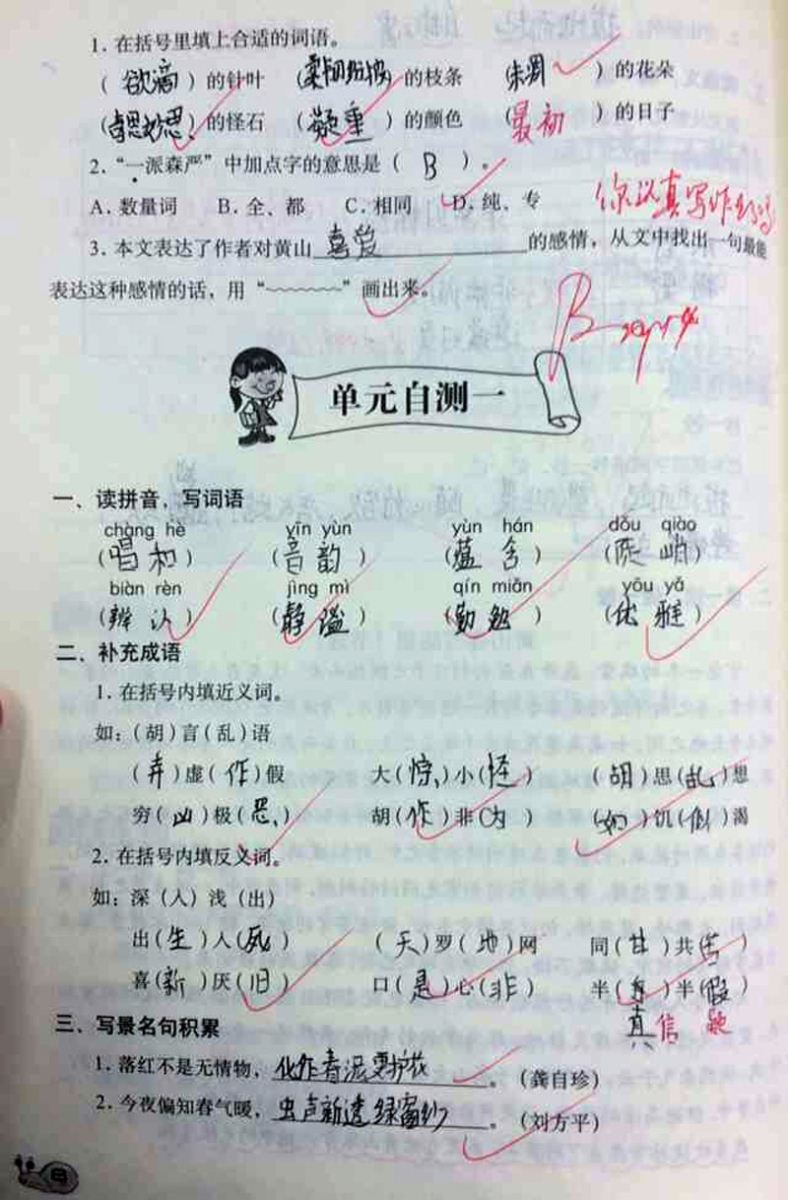 1. 在括号里填上合适的词语。
( 欲滴 ) 的针叶 ( ) 的枝条 ( 朱凋 ) 的花朵
( ) 的怪石 ( 凝重 ) 的颜色 ( 最初 ) 的日子
2. “一派森严”中加点字的意思是 ( B )。
A. 数量词 B. 全、都 C. 相同 D. 纯、专
你认真写作业了吗
3. 本文表达了作者对黄山 喜爱 的感情，从文中找出一句最能
表达这种感情的话，用“﹏﹏﹏”画出来。
B
单元自测一
一、读拼音，写词语
chàng hè yīn yùn yùn hán dǒu qiào
(唱和) (音韵) (蕴含) (陡峭)
biàn rèn jìng mì qín miǎn yōu yǎ
(辨认) (静谧) (勤勉) (优雅)
二、补充成语
1. 在括号内填近义词。
如：(胡)言(乱)语
(弄)虚(作)假 大(惊)小(怪) (胡)思(乱)想
穷(凶)极(恶) 胡(作)非(为) (如)饥(似)渴
2. 在括号内填反义词。
如：深 (人) 浅 (出)
出(生)人(死) (天)罗(地)网 同(甘)共(苦)
喜(新)厌(旧) 口(是)心(非) 半(真)半(假)
真 信
三、写景名句积累
1. 落红不是无情物，化作春泥更护花。(龚自珍)
2. 今夜偏知春气暖，虫声新透绿窗纱。(刘方平)